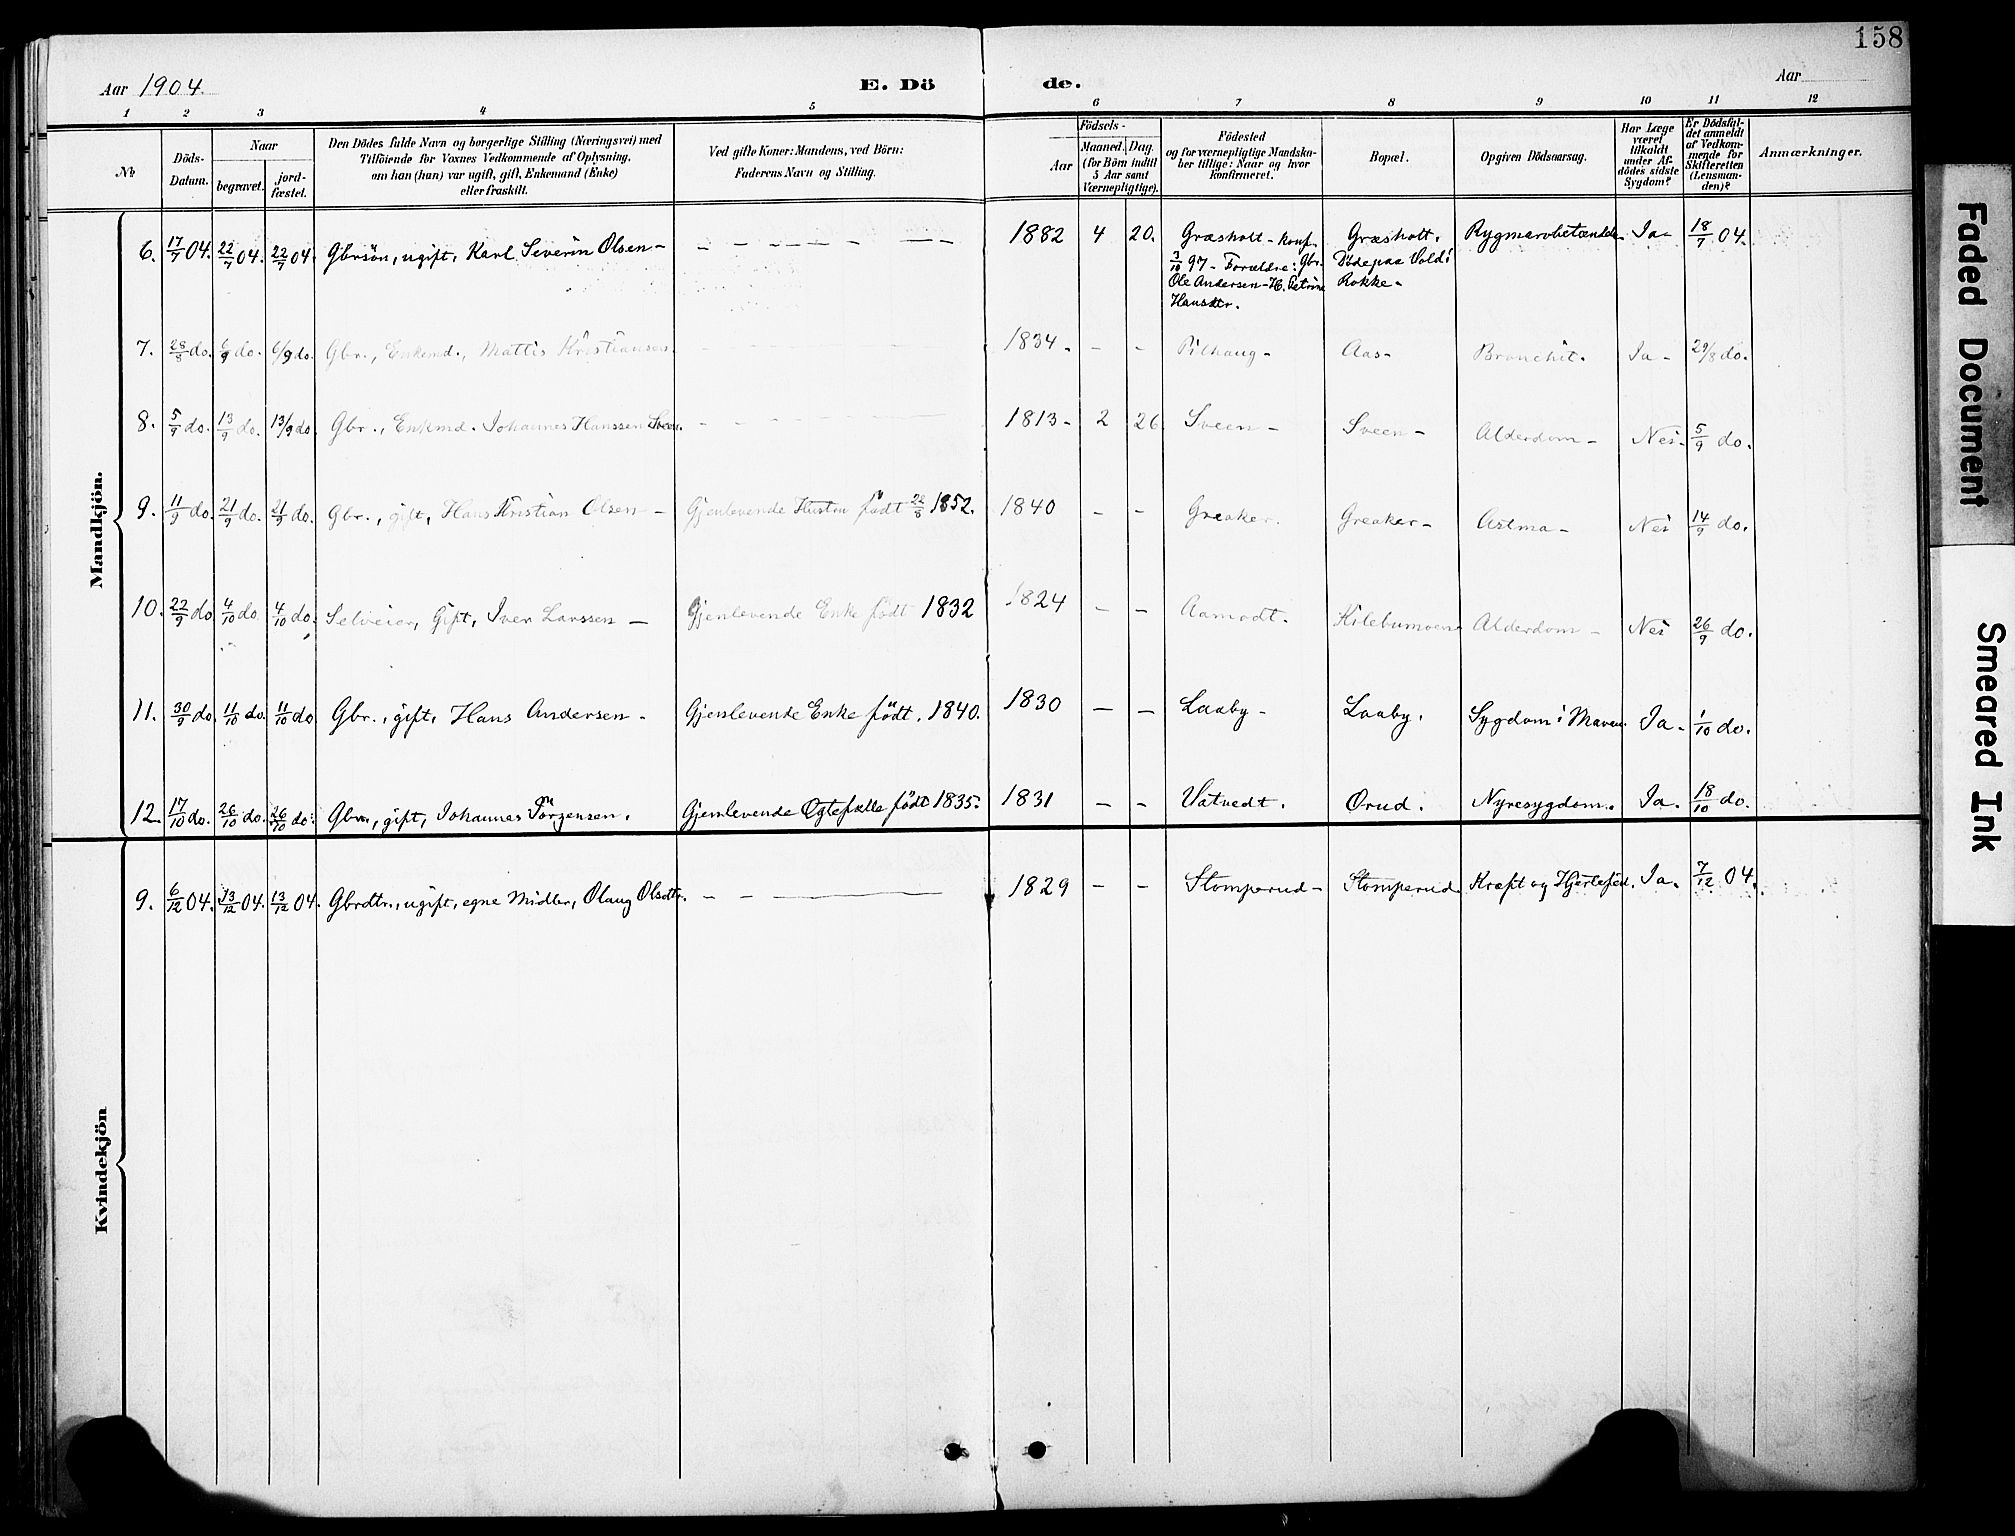 158
Aar 1904.
E. Dö de.
Aar
1 2 3 4 5 6 7 8 9 10 11 12
No
Döds-
Datum.
Naar
begravet.
jord-
fæstet.
Den Dödes fulde Navn og borgerlige Stilling (Næringsvei) med
Tilföiende for Voxnes Vedkommende af Oplysning,
om han (hun) var ugift, gift, Enkemand (Enke)
eller fraskilt.
Ved gifte Koner: Mandens, ved Börn:
Faderens Navn og Stilling.
Födsels-
Aar
Maaned. Dag.
(for Börn indtil
5 Aar samt
Værnepligtige).
Födested
og for værnepligtige Mandska-
ber tillige: Naar og hvor
konfirmeret.
Bopæl.
Opgiven Dödsaarsag.
Har Læge
været
tilkaldt
under Af-
dödes sidste
Sygdom?
Er Dödsfal-
det anmeldt
af Vedkom-
mende for
Skifteretten
(Lensman-
den)?
Anmærkninger.
Mandkjön.
6. 17/7 04. 22/7 04. 22/7 04. Gbrsön, ugift, Karl Severin Olsen - 1882 4 20. Græsholt - konf. Græsholt. Rygmarvbetændelse Ja - 18/7 04.
3/10 97 - Forældre: Gbr. Döde paa Vold i
Ole Andersen - H. Petrine Rokke -
Hansdtr.
7. 28/8 do. 6/9 do. 6/9 do. Gbr., Enkemd., Mattis Kristiansen. 1834 - - - Pilhaug - Aas - Bronchit. Ja - 29/8 do.
8. 5/9 do. 13/9 do. 13/9 do. Gbr., Enkmd. Johannes Hanssen Sveen. 1813 - 2 26 Sveen - Sveen - Alderdom - Nei. 5/9 do.
9. 11/9 do. 21/9 do. 21/9 do. Gbr., gift, Hans Kristian Olsen - Gjenlevende Hustru födt 22/8 1852. 1840 - - Greaker. Greaker - Astma - Nei 14/9 do.
10. 22/9 do 4/10 do 4/10 do. Selveier, Gift, Iver Larssen - Gjenlevende Enke födt 1832 1824 - - Aamodt. Kilebumoen Alderdom - Nei 26/9 do.
11. 30/9 do. 11/10 do. 11/10 do Gbr., gift, Hans Andersen - Gjenlevende Enke födt. 1840. 1830 - - Laaby - Laaby. Sygdom i Maven. Ja - 1/10 do.
12. 17/10 do. 26/10 do. 26/10 do. Gbr., gift, Johannes Jörgensen. Gjenlevende Egtefælle födt 1835. 1831 - - Vatvedt. Orud. Nyresygdom. Ja. 18/10 do.
Kvindekjön
9. 6/12 04. 13/12 04. 13/12 04. Gbrdtr., ugift, egne Midler, Olaug Olsdtr. - - 1829 - - Stomperud - Stomperud. Kræft og Hjertefeil. Ja. 7/12 04.
Faded Document
Smeared Ink